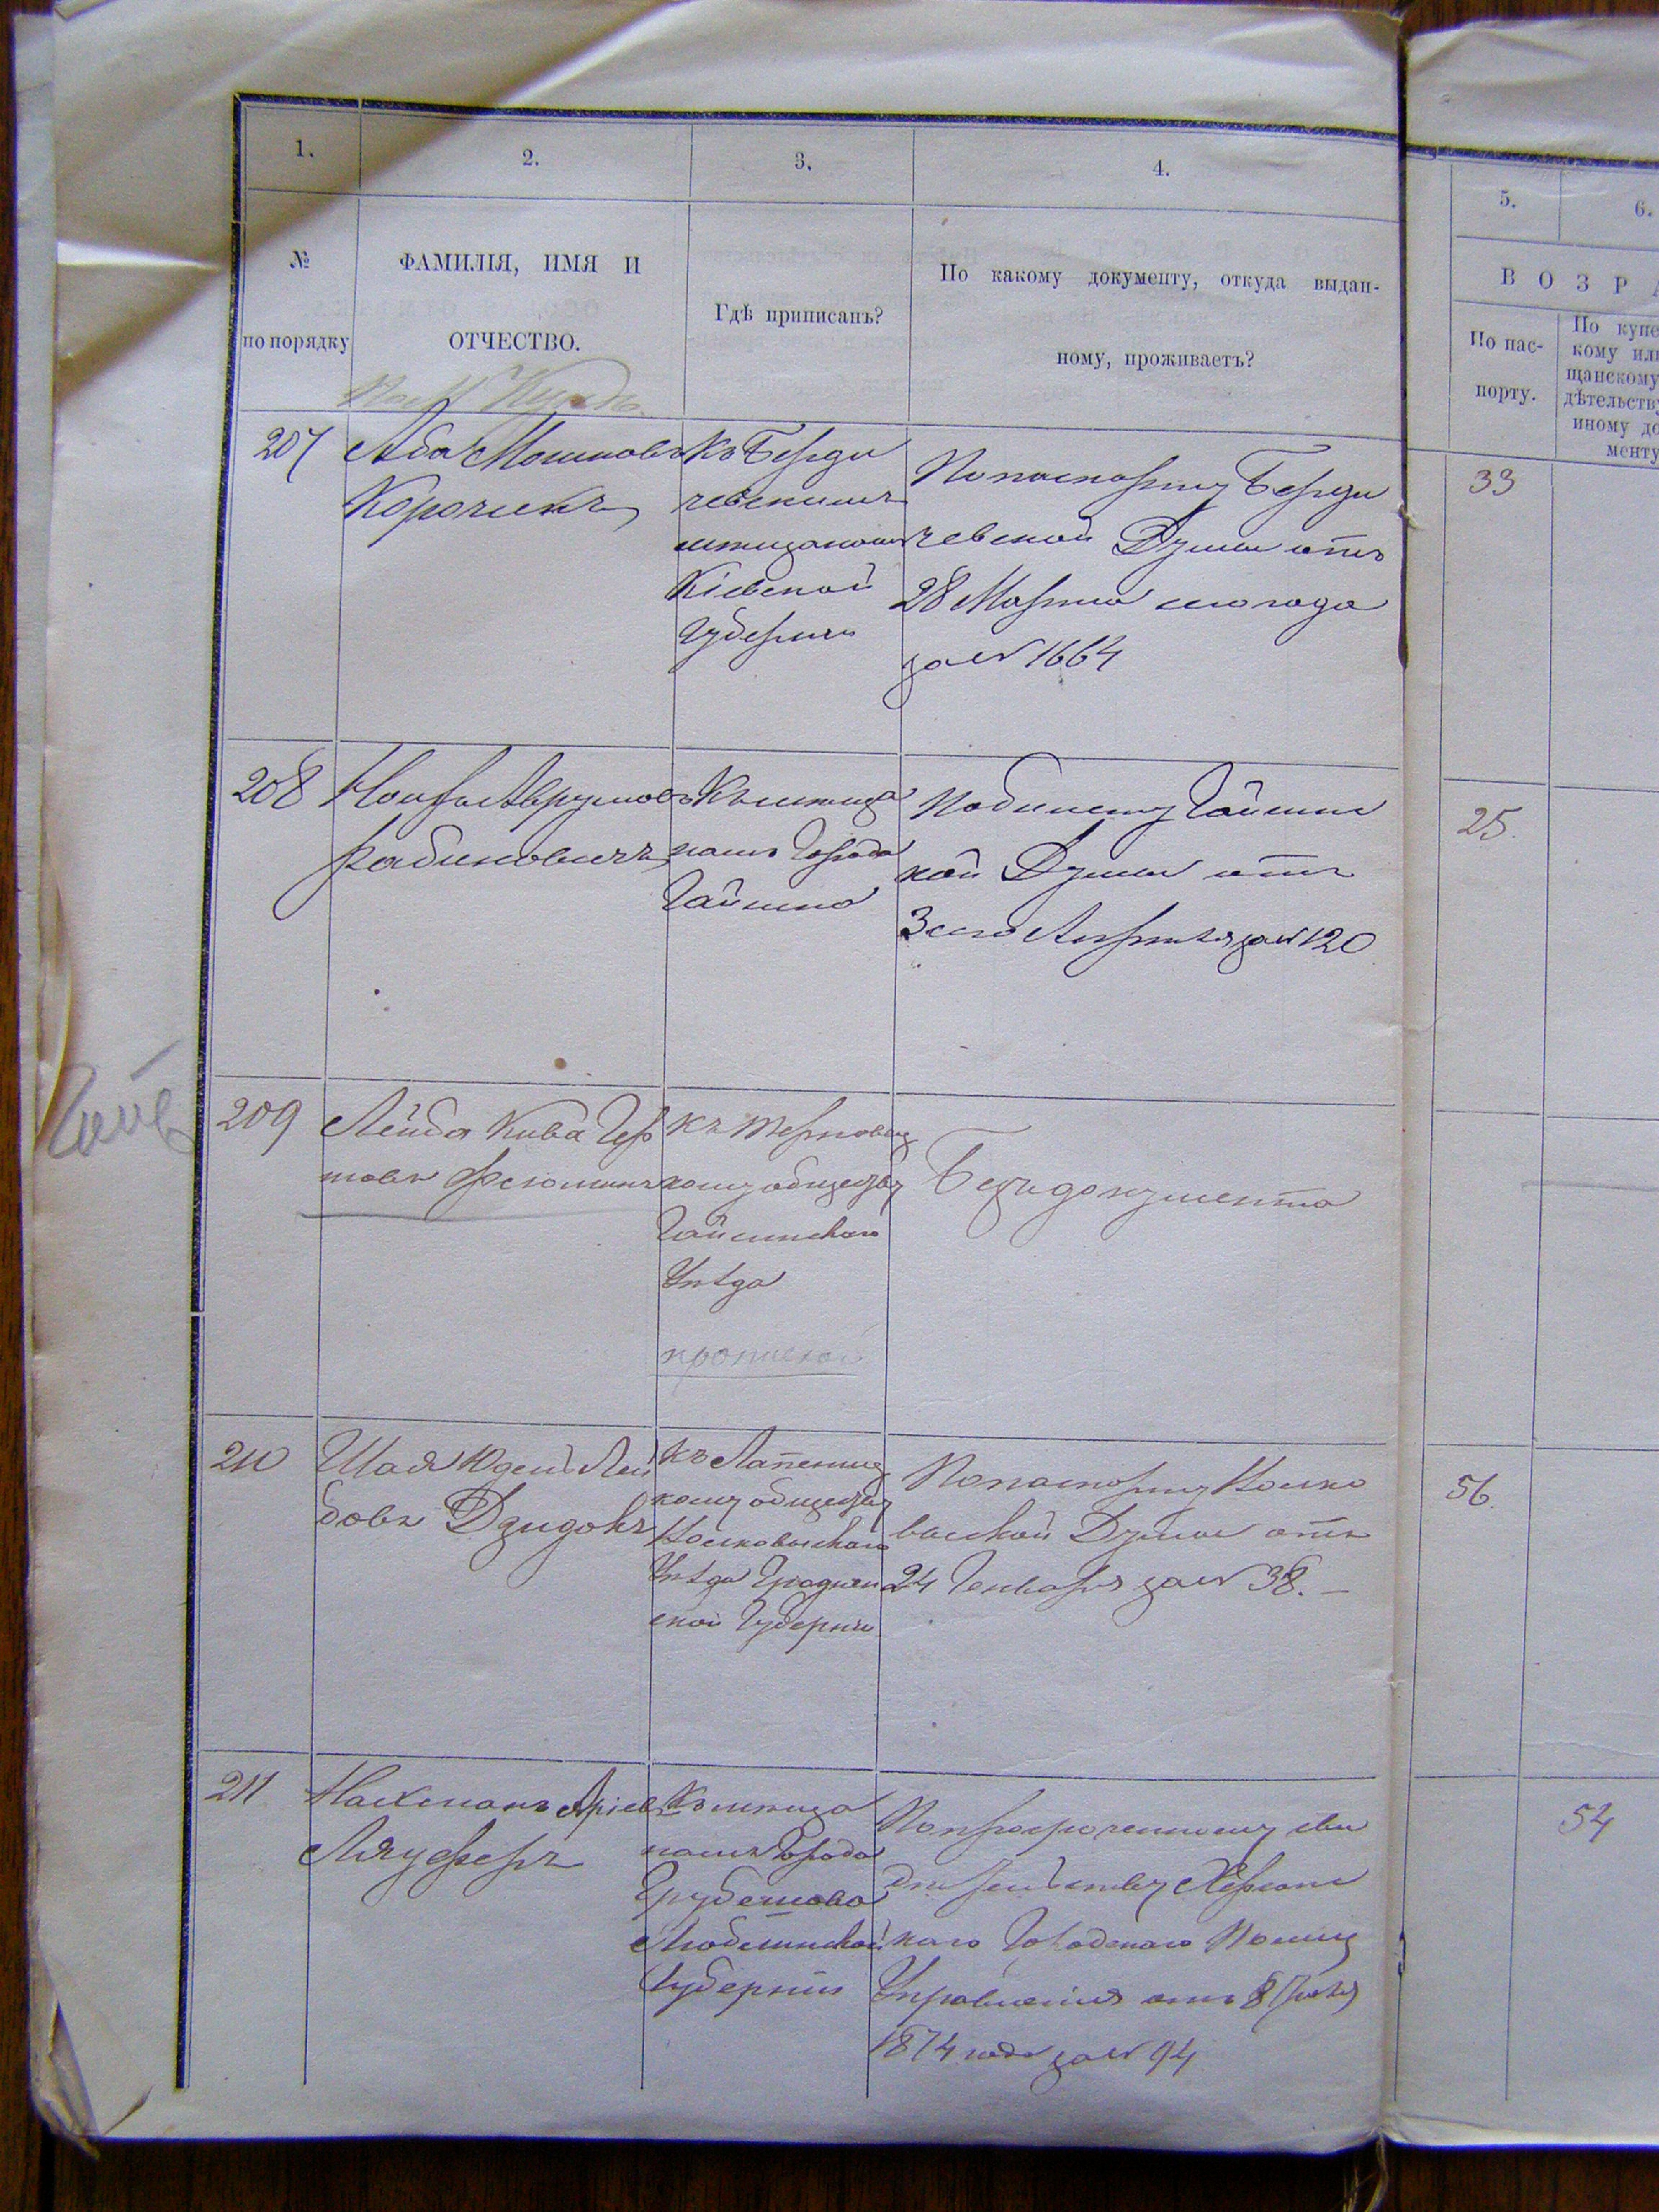 1.
2.
3.
4.
5.
6.
№
по порядку
ФАМИЛІЯ, ИМЯ И
ОТЧЕСТВО.
Гдѣ приписанъ?
По какому документу, откуда выдан-
ному, проживаетъ?
В О З Р А
По пас-
порту.
По купе
кому или
щанскому
дѣтельству
иному до
менту
207
Аба Мошковъ
Корочикъ
Къ Берди
чевскимъ
мѣщанамъ
Кіевской
Губерніи
По паспорту Берди
чевской Думы отъ
28 Марта сего года
за № 1664
33
208
Аврумовъ
Рабиновичъ
Къ мѣща
намъ Города
Гайсина
По билету Гайсинс
кой Думы отъ
3 сего Апрѣля за № 120
25.
209
Лейба Кива Гер
шовъ
Къ Терновс
кому обществу
Гайсинскаго
Уѣзда
Безъ документа
210
Шая Юдель Лей
бовъ Дзидокъ
Къ
кому обществу
Волковыскаго
Уѣзда Гроднен
ской Губерніи
По паспорту Волко
выской Думы отъ
24 Генваря за № 38. —
56.
211
Нахманъ Аріевъ
Къ мѣща
намъ Города
Грубешова
Люблинской
Губерніи
По просроченному сви
дѣтельству Херсонс
каго Городскаго Полиц
Управленія отъ 8
1874 года за № 94
54